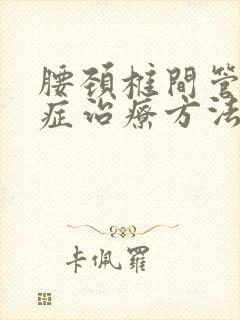 腰颈椎間管
症治療方法
卡佩羅